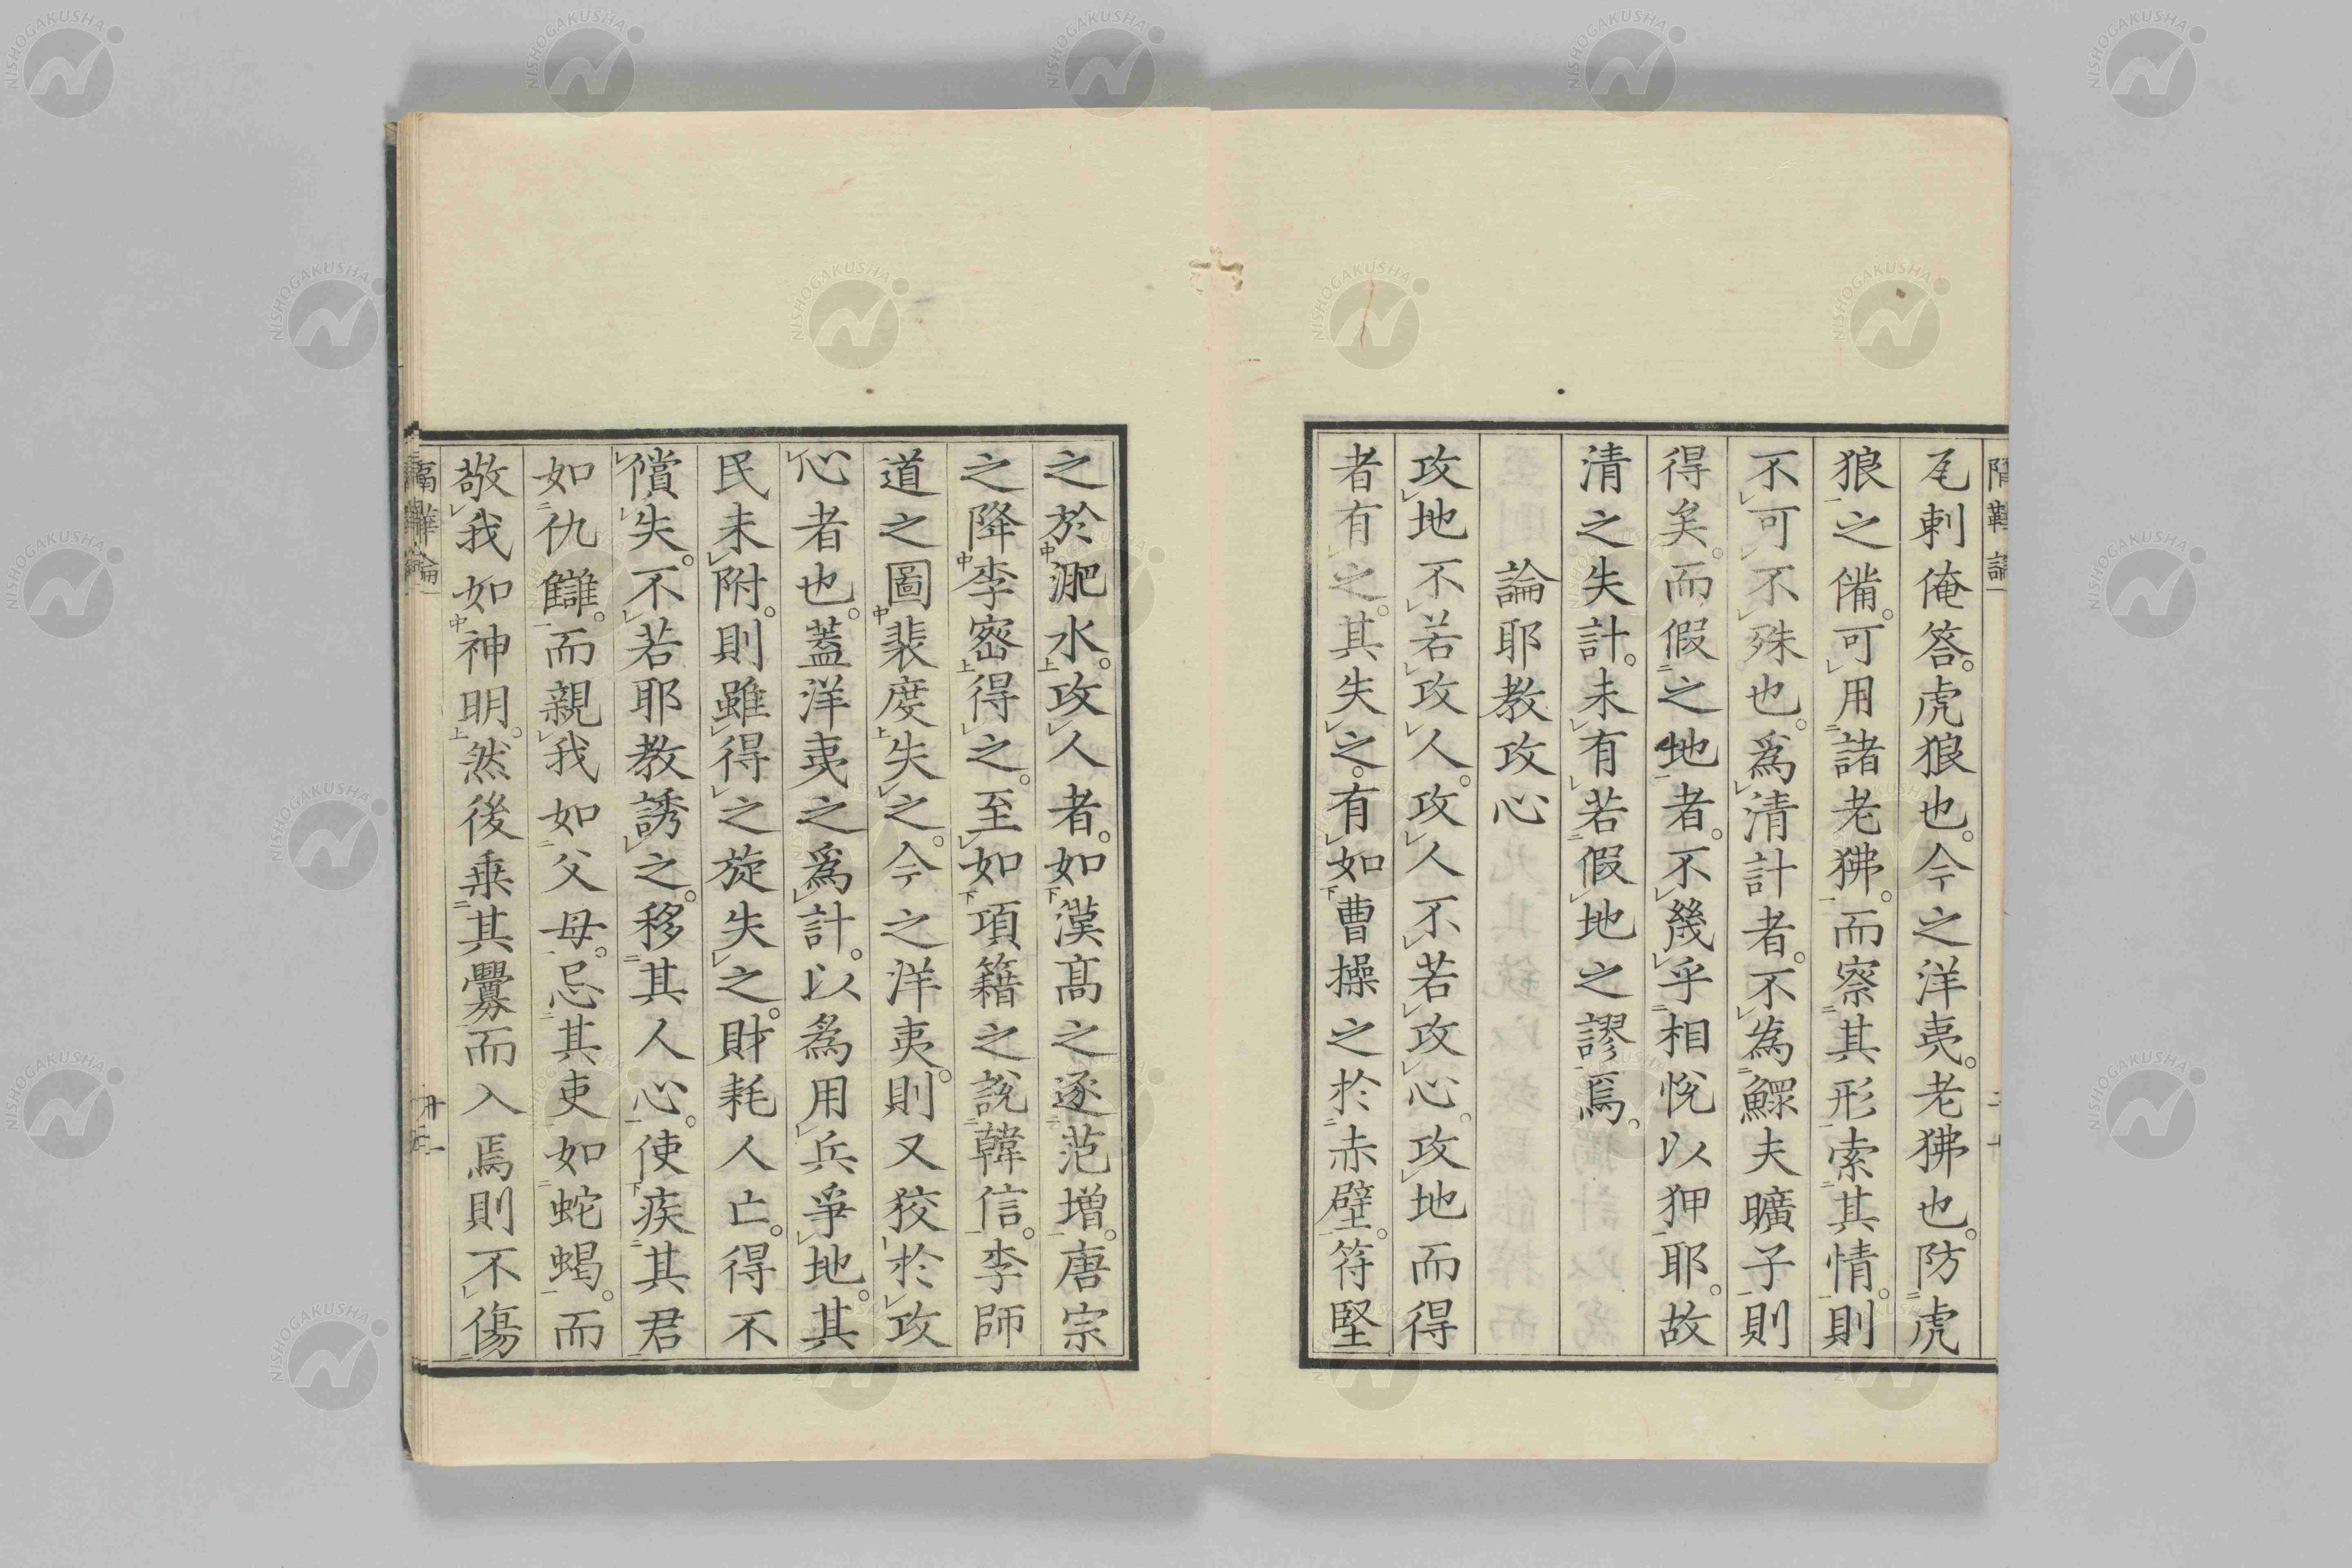 尾剌俺答。虎狼也。今之洋夷。老狒也。防虎
狼之備。可用諸老狒。而察其形索其情。則
不可不殊也。爲清計者。不為鰥夫曠子則
得矣。而假之地者。不幾乎相悅以狎耶。故
清之失計。未有若假地之謬焉。
論耶教攻心
攻地不若攻人。攻人不若攻心。攻地而得
者有之。其失之。有如曹操之於赤壁。符堅
之於淝水。攻人者。如漢高之逐范増。唐宗
之降李密得之。至如項籍之說韓信。李師
道之圖裴度失之。今之洋夷。則又狡於攻
心者也。蓋洋夷之爲計。以為用兵爭地。其
民未附。則雖得之旋失之。財耗人亡。得不
償失。不若耶教誘之。移其人心。使疾其君
如仇讎。而親我如父母。忌其吏如蛇蝎。而
敬我如神明。然後乗其釁而入焉則不傷
NISHOGAKUSHA